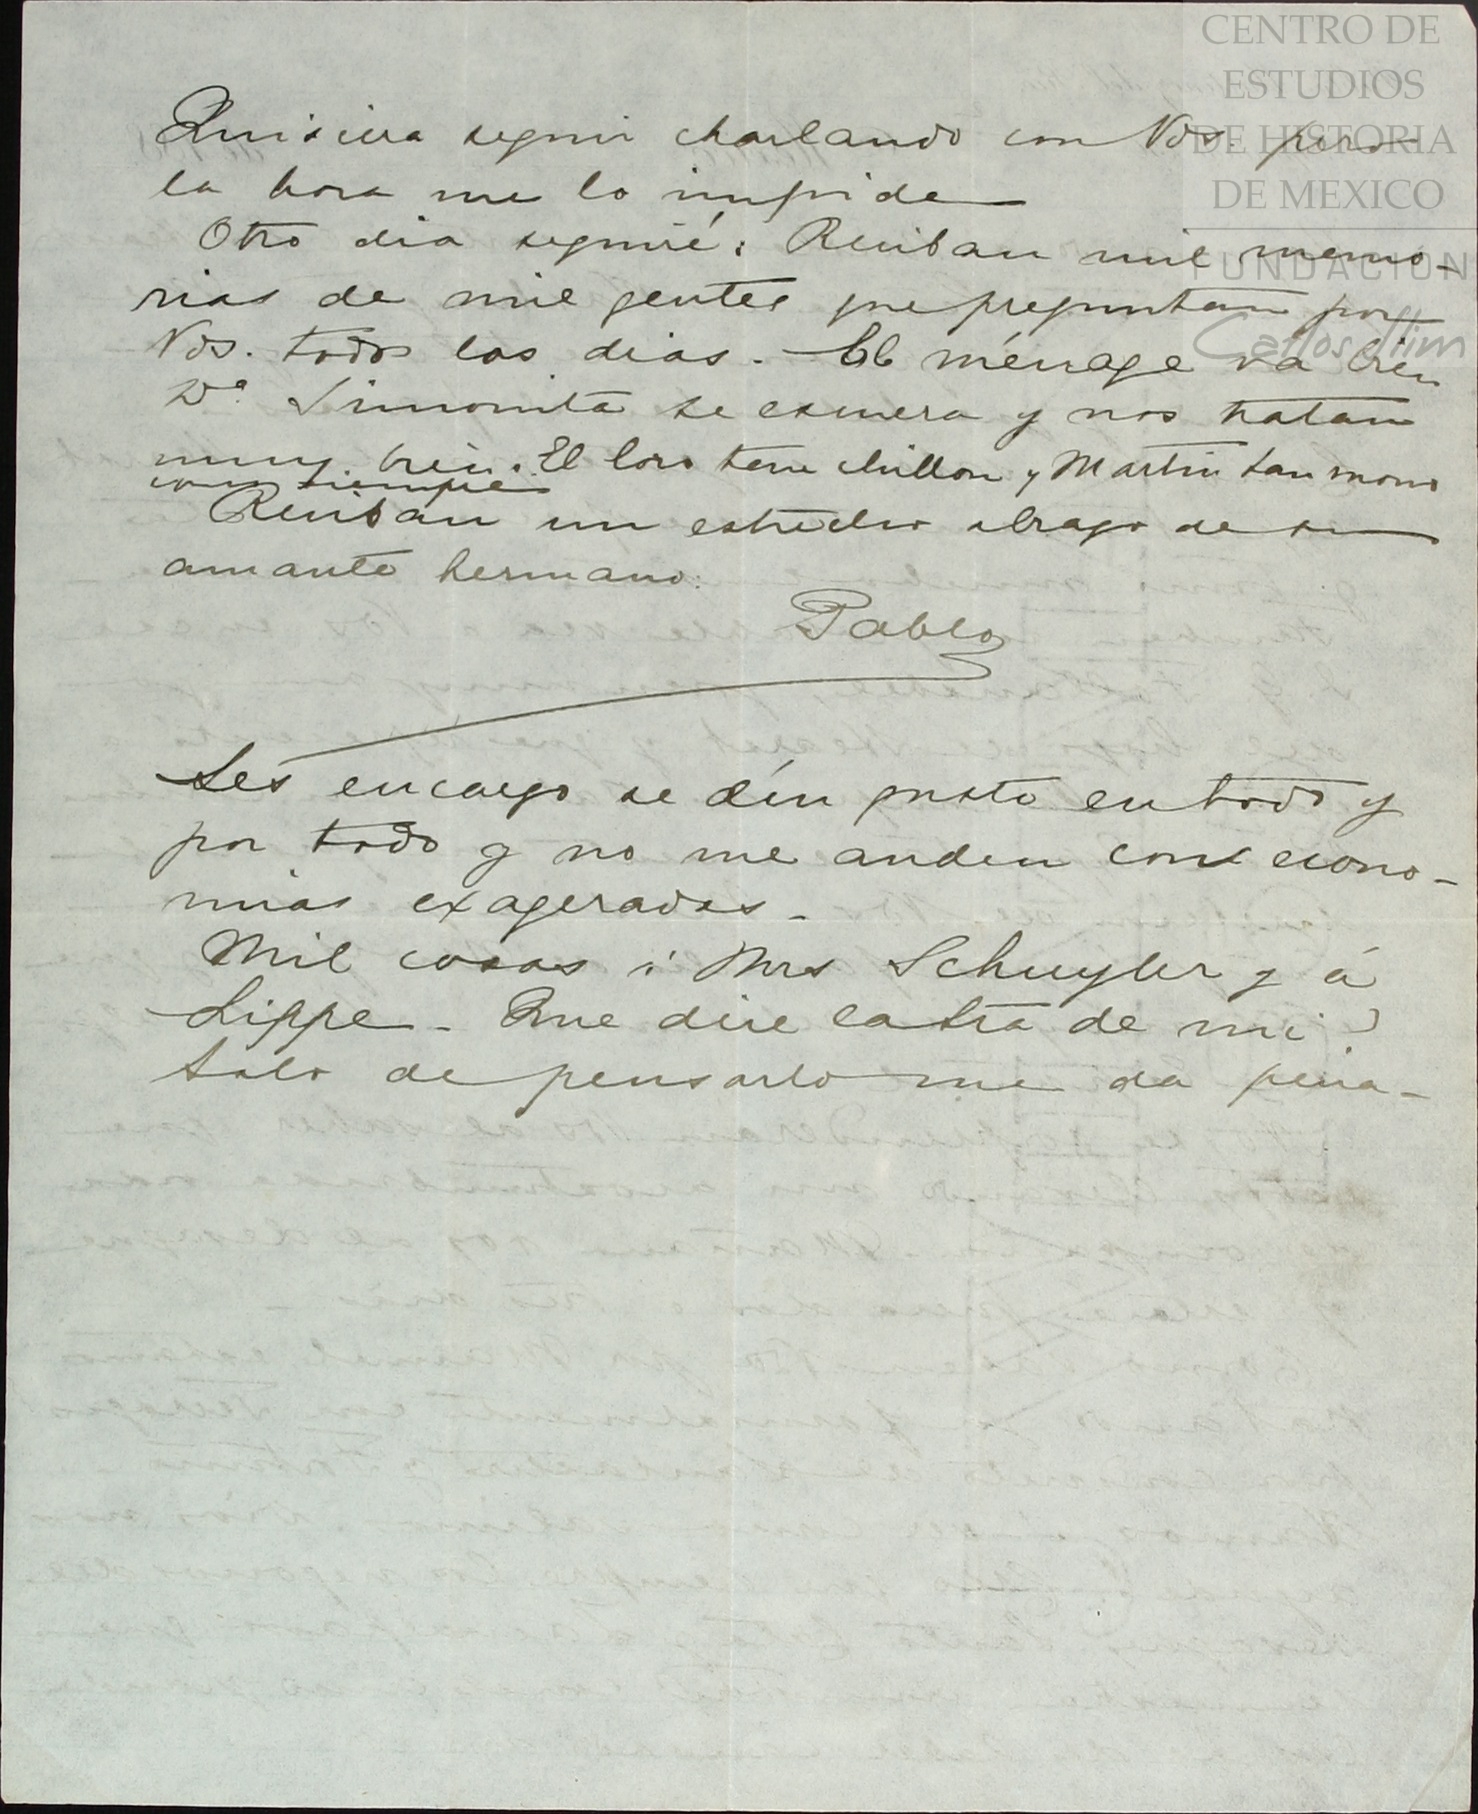 CENTRO DE
ESTUDIOS
DE HISTORIA
DE MEXICO
FUNDACION
Carlos Slim
Quisiera seguir charlando con Vds. pero
la hora me lo impide
Otro dia seguiré. Reciban mil memo-
rias de mil gentes que preguntan por
Vds. todos los dias. - El ménage va bien
Dª Simonita se esmera y nos tratan
muy bien. El loro tan chillon y Martin tan mono
como siempre
Reciban un estrecho abrazo de su
amante hermano.
Pablo
Les encargo se dén gusto en todo y
por todo y no me anden con econo-
mias exageradas -
Mil cosas á Mrs Schuyler y á
Lippe - Que dice de mi?
Solo de pensarlo me da pena -